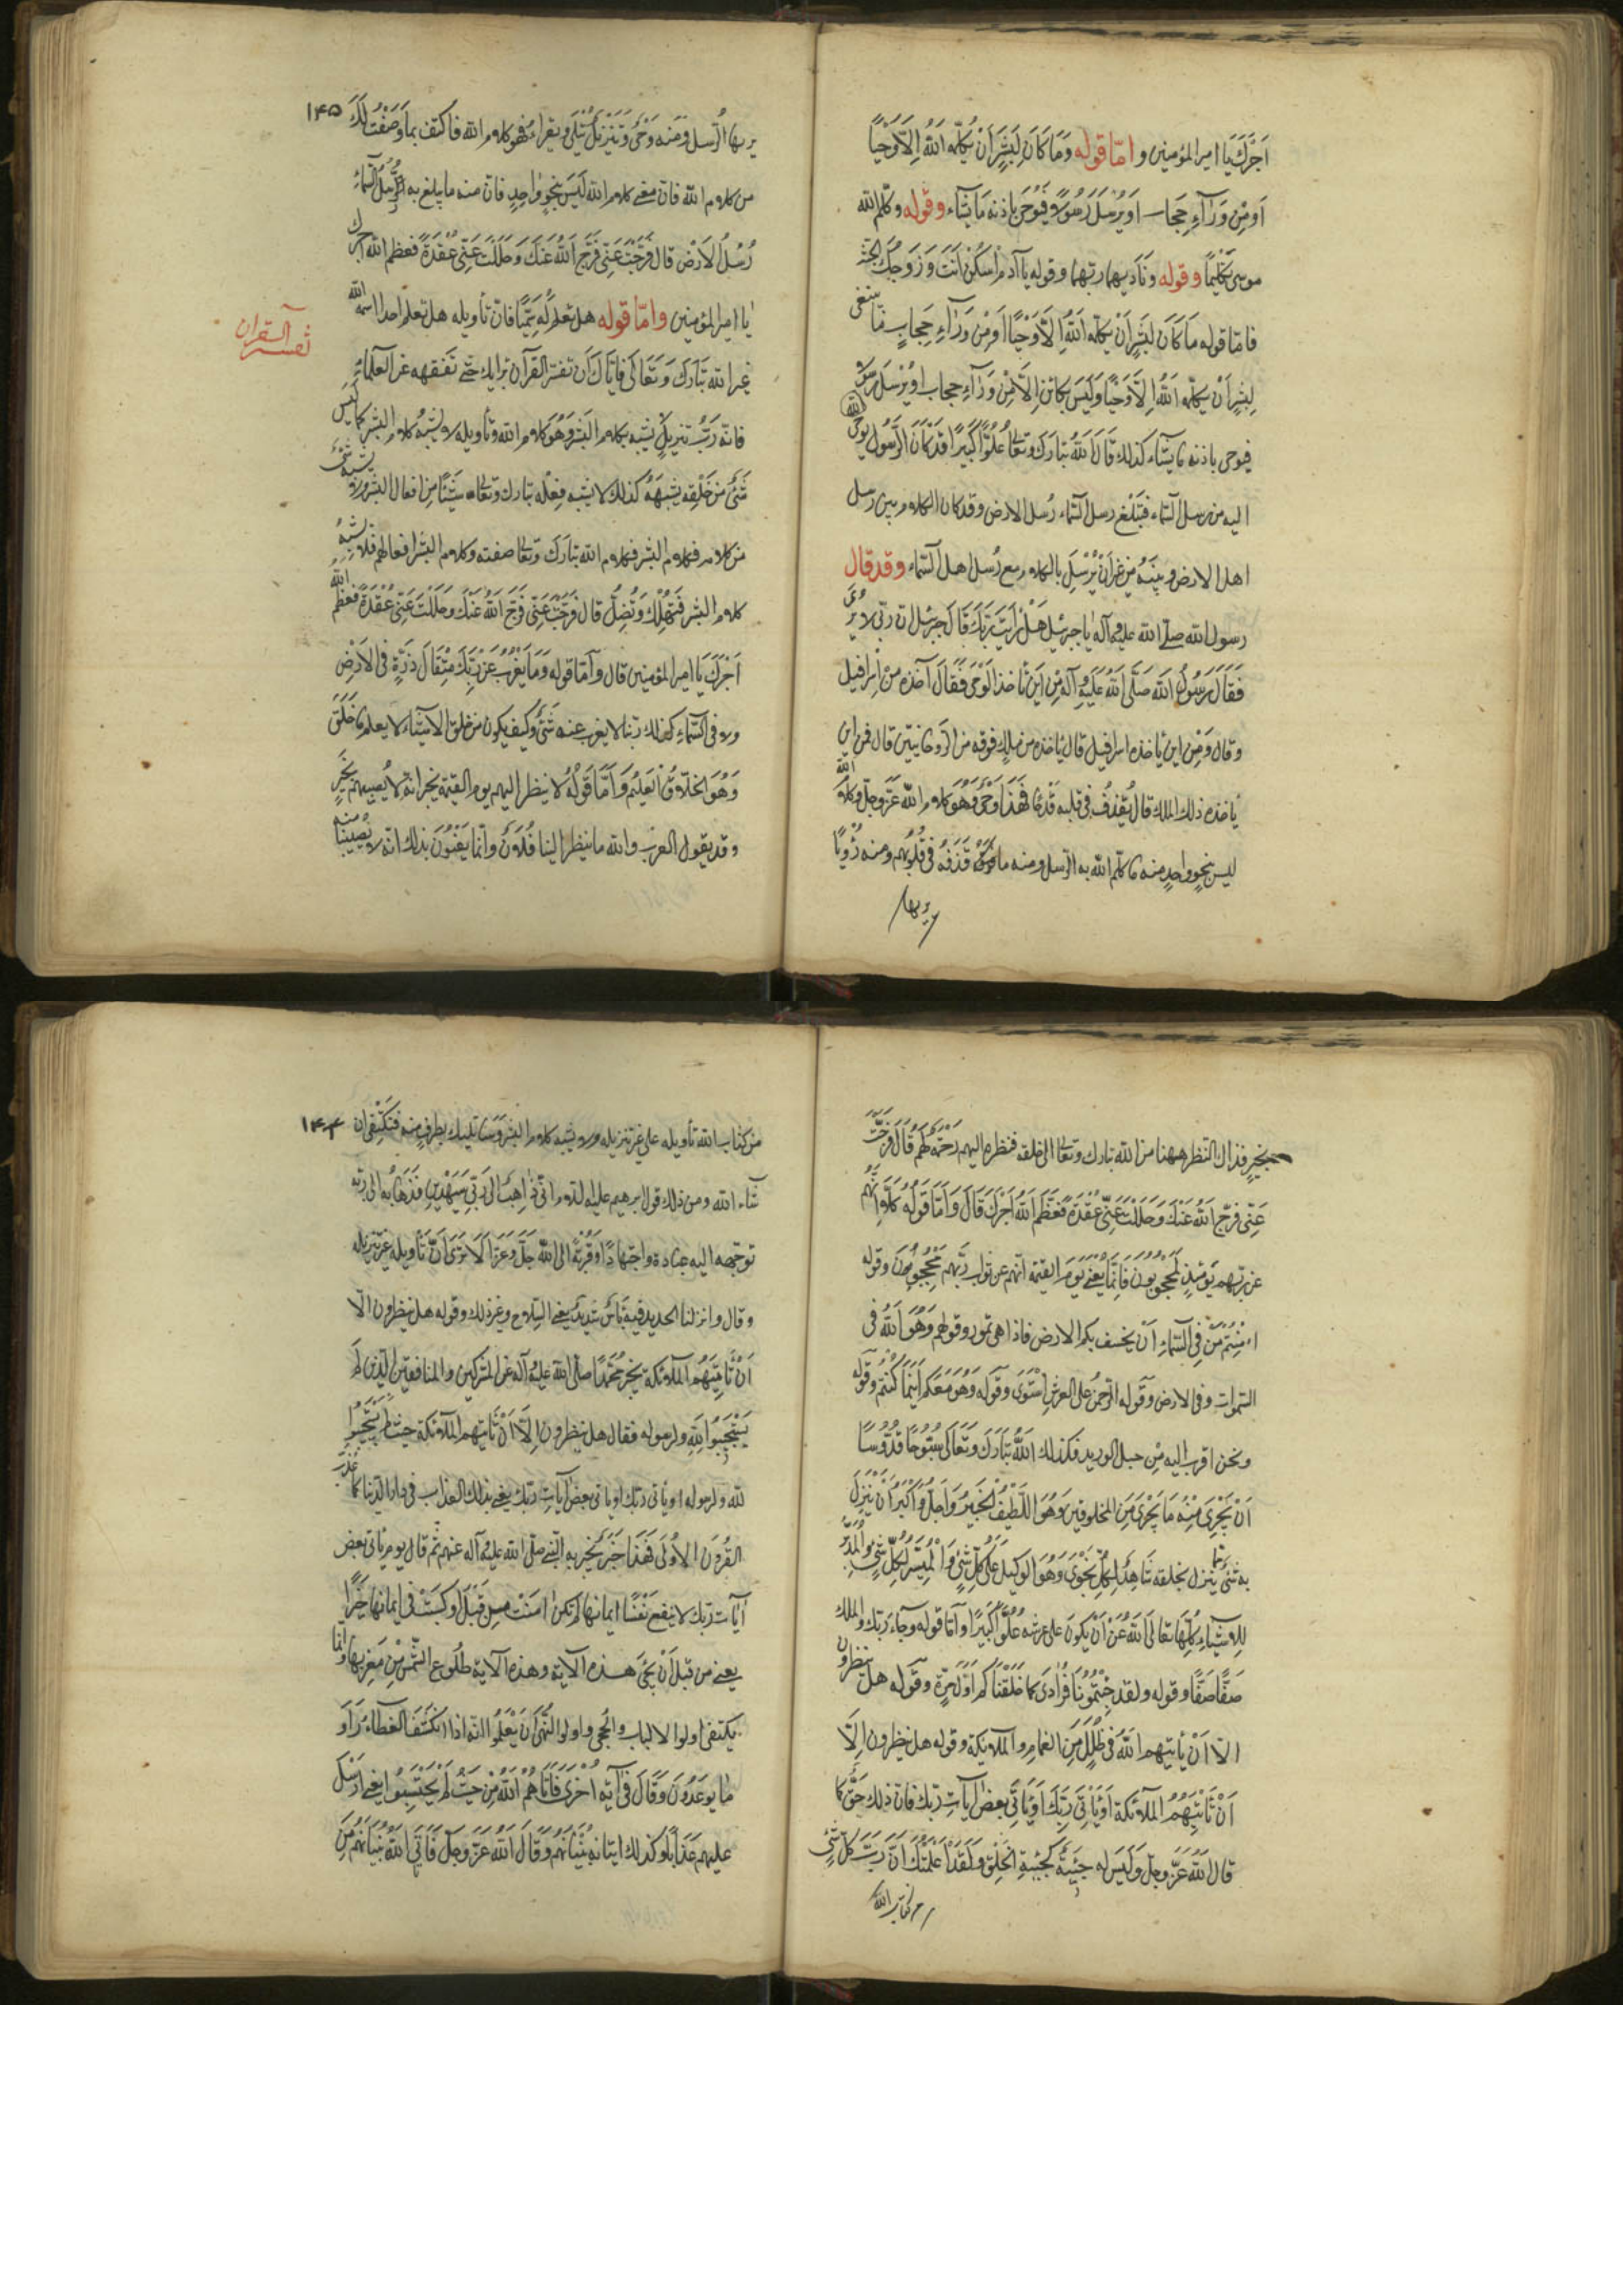 اَجْرَكَ يَا امير المؤمنين و امّا قوله وَمَا كَانَ لِبَشَرٍ اَنْ يُكَلِّمَهُ اللهُ اِلَّا وَحْيًا
اَوْ مِنْ وَرَآءِ حِجَاب اَوْ يُرْسِلَ رَسُولًا فَيُوحِيَ بِاذنه مَا يَشَآء وقوله وكلّم الله
موسى تَكْلِيمًا وقوله وَنَادَيهما ربّهما وقوله يا آدم اسْكُنْ اَنْتَ وَزَوْجُكَ الجَنَّة
فامّا قوله مَا كَانَ لِبَشَرٍ اَنْ يكلّمه اللهُ اِلَّا وَحْيًا اَوْ مِنْ وَرَآءِ حِجَابٍ مَا ينبغى
لِبشرٍ اَنْ يكلّمه اللهُ اِلَّا وَحْيًا وَلَيْسَ بكائن اِلَّا مِنْ وَرَآءِ حجاب او يُرْسِلَ رسولا
فيوحى باذنه ما يشآء كذلك قَالَ اللهُ تبارك وتعالى عُلُوًّا كَبِيرًا قَدْ كَانَ الرَّسُول يوحى
اليه من رسل السّماء فَتَبْلُغ رسل السّماء رُسل الارض وقد كان الكلام بين رسل
اهل الارض وبَيْنَهُ من غير اَنْ يُرْسِلَ بالكلام مع رُسل اهل السّماء وقد قال
رسول الله صلّى الله عليه وآله يا جبرئيل هَلْ رَاَيْتَ رَبَّكَ قَالَ جبرئيل انّ ربّى لا يُرَى
فَقَالَ رَسُولُ الله صَلَّى اللهُ عَلَيْهِ وَآلِهِ مِنْ اَيْنَ تَأخذ الْوَحْىَ فَقَالَ آخذه مِنْ اِسْرَافيل
وقال وَمِنْ اين يأخذه اسرافيل قال يأخذه من ملك فوقه من الرّوحانيين قال فمن اين
يأخذه ذلك الملك قال يُقْذَفُ فى قلبه قَذْفًا فَهَذَا وَحْىٌ وَهُوَ كلام الله عَزَّ وجلّ وكلام الله
ليس بنحوٍ واحِدٍ منه ما كلّم الله به الرّسل ومنه ما قَذَفَهُ فى قُلُوبهم ومنه رُؤْيَا
يريها
١٤٥
يريها الرّسل ومنه وَحْىٌ وَتَنْزِيلٌ يُتْلَى ويقرأ فهو كلام الله فاكتف بما وَصَفْتُ لَكَ
من كلام الله فان معنى كلام الله لَيْسَ بنحوٍ واحِدٍ فان منه ما يبلغ به رُسُلُ السَّمَاءِ
رُسُلَ الْاَرْض قال فَرَّجْتَ عَنِّى فَرَّجَ اللهُ عَنْكَ وَحَلَلْتَ عَنِّى عُقْدَةً فعظم الله اجرك
يا امير المؤمنين وامّا قوله هل تَعْلَمُ لَهُ سَمِيًّا فان تأويله هل تعلم احدا اسمه الله
غير الله تَبَارَكَ وَتَعَالَى فَاِيَّاكَ اَنْ تفسّر القرآن برأيك حَتَّى تَفْقَهه عن العلماء
تفسير القران
فانّه رُبَّ تنزيلٍ يشبه بكلام البَشَر وَهُوَ كلام الله وتأويله لا يشبه كلام البشر كما لَيْسَ
شَىْءٌ مِنْ خَلْقِهِ يشبهَهُ كذلك لا يشبه فِعْلُهُ تبارك وتعالى شَيْئًا مِنْ افعال البشر ولا يشبه شىء
من كلامه فكلام البشر فكلام الله تبارَكَ وتعالى صفته وكلام البشر افعالهم فلا تشبّه
كلام الله كلام البشر فَتَهْلِكَ وَتَضِلَّ قال فَرَّجْتَ عَنِّى فَرَّجَ اللهُ عَنْكَ وَحَلَلْتَ عَنِّى عُقْدَةً فعظّم الله
اَجْرَكَ يَا امير المؤمنين قال وَاَمّا قوله وَمَا يَعْزُبُ عَنْ رَبِّكَ مِثْقَالَ ذَرَّةٍ فى الارْضِ
ولا فى السّمَآءِ كذلك ربّنا لا يعزب عنه شَىْءٌ وكيف يكون من خلق الاشياء لا يعلم ما خَلَقَ
وَهُوَ الخَلَّاقُ الْعَلِيمُ وَاَمَّا قَوْلُهُ لا ينظر اليهم يوم القيمة يخبر انّه لا يُصِيبهم بخَيْرٍ
وقد يقول العرب والله ما ينظر الينا فُلَانٌ وانّما يَعْنُونَ بذلك انّه لا يصيبنا منه
بخيرٍ فذلك النّظر ههنا من الله تبارك وتعالى الى خلقه فنظره اليهم رَحْمَةٌ لَهُمْ قَالَ فَرَّجْتَ
عَنِّى فرّج اللهُ عَنْكَ وَحَلَلْتَ عَنِّى عُقْدَةً فَعَظَّمَ اللهُ اَجْرَكَ قَالَ وَاَمَّا قَوْلُهُ كَلَّا اِنَّهُمْ
عن ربّهم يَوْمَئِذٍ لَمَحْجُوبُونَ فَاِنَّمَا يَعْنِى يَوْمَ القيمة انّهم عن ثواب رَبِّهِمْ مَحْجُوبُونَ وقوله
ءَاَمِنْتُمْ مَنْ فِى السَّمَاءِ اَنْ يخسف بكم الارض فاذا هى تمور وقوله وَهُوَ اللهُ فى
السّموات وفى الارض وَقوله الرَّحْمنُ على العرش اسْتَوَى وقوله وَهُوَ مَعَكُمْ اَيْنَمَا كُنْتُمْ وقوله
ونحن اقرب اليه مِنْ حبل الوريد فكذلك اللهُ تَبَارَكَ وَتَعَالَى سُبُّوحًا قُدُّوسًا
اَنْ يَجْرِىَ مِنْهُ مَا يَجْرِى مِنَ المخلوقين وَهُوَ اللَّطِيفُ الْخَبِيرُ وَاَجَلُّ وَاَكْبَرُ اَنْ يَنْزِلَ
به شَىْءٌ ممّا ينزل بخلقه شَاهِدٌ لِكُلِّ نَجْوَى وَهُوَ الوكيل عَلَى كُلِّ شَىْءٍ وَالْمُيَسِّرُ لِكُلِّ شَىْءٍ والمُدَبِّرُ
للاشْيَاءِ كُلِّهَا تعالى اللهُ عَنْ اَنْ يَكُونَ على عرشه عُلُوًّا كَبِيرًا وَاَمّا قوله وجآء ربّك والملك
صَفًّا صَفًّا وقوله ولقد جِئْتُمُونَا فُرَادَى كما خَلَقْنَاكُمْ اَوَّلَ مَرَّةٍ وقوله هل ينظرون
الّا اَنْ يأتيهم اللهُ فى ظُلَلٍ مِنَ الغمام والملائكة وقوله هل ينظرون اِلَّا
اَنْ تَأْتِيَهُمُ الملائكة اَوْ يَأْتِىَ رَبُّكَ اَوْ يَأْتِىَ بعض آياتِ ربّك فان ذلك حَقٌّ كما
قال اللهُ عَزَّ وجلّ وَلَيْسَ له جيئةٌ كجيئةِ الخَلْق وَلَقَدْ اَعْلَمْتُكَ اَنَّ رُبَّ كلّ شىء
من كتاب الله
١٤٤
من كتاب الله تأويله على غير تنزيله ولا يشبه كلام البشر وسانبئك بطرف منه فتكتفى ان
شاء الله ومن ذلك قول ابرهيم عليه السّلام انّى ذاهِبٌ الى رَبّى سَيَهْدِينِ فَذَهَابُهُ الى ربّه
توجّهه اليه عبادة واجتهادًا وَقُرْبَةً الى الله جَلَّ وَعَزَّ اَلَا تَرَى اَنَّ تَأويله غير تنزيله
وقال وانزلنا الحديد فيه بَأْسٌ شَديدٌ يعنى السّلاح وغير ذلك وقوله هل ينظرون الّا
اَنْ تَأْتِيَهُمُ المَلَائِكَة يخبر مُحَمَّدًا صلّى الله عليه وآله عن المشركين والمنافقين الّذين لَمْ
يَسْتَجِيبُوا لِلّهِ ولرسوله فقال هل ينظرون اِلَّا اَنْ تأتيهم الملائكة حيث لم يَسْتَجِيبُوا
لله ولرسوله او يأتى ربّك او يأتى بعض آياتِ ربّك يعنى بذلك العذاب فى دار الدّنيا كما عَذَّبَ
القُرُونَ الْاُولَى فَهَذَا خَبَرٌ يُخْبِرُ به النّبىّ صلّى الله عليه وآله عنهم ثمّ قال يوم يأتى بعض
آيات ربّك لا ينفع نَفْسًا ايمانها لم تكن آمَنَتْ من قَبْلُ او كَسَبَتْ فى ايمانها خَيْرًا
يعنى من قبل اَنْ يَجِىءَ هذه الآية وهذه الآية طلُوع الشَّمْسِ مِنْ مَغْرِبِهَا وانّما
يكتفى اولوا الالباب والحجى واولوا النُّهَى اَنْ يَعْلَمُوا انّه اذا انكشف الغطاء رَاَوْا
ما يُوعَدُونَ وَقَالَ فى آية اُخْرَى فَاَتَاهُمُ اللهُ مِنْ حَيْثُ لَمْ يَحْتَسِبُوا يعنى ارسل
عليهم عَذَابًا وكذلك اتيانه بُنْيَانَهُمْ وَقَالَ اللهُ عَزَّ وَجَلَّ فَاَتَى اللهُ بُنْيَانَهُمْ مِنَ